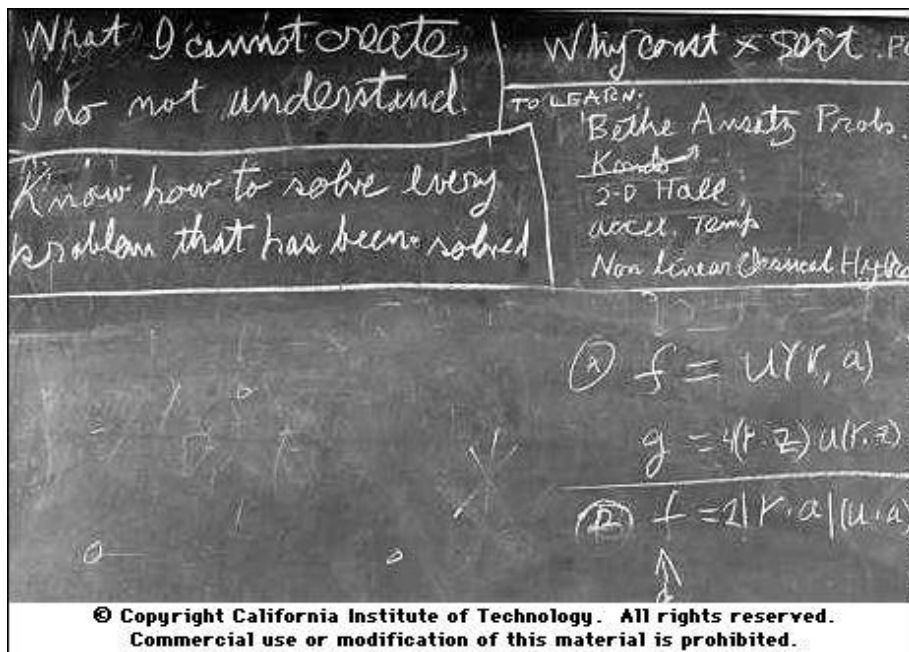 What I cannot create,
I do not understand.
Know how to solve every
problem that has been solved
Why const × sort . Po
TO LEARN:
Bethe Ansatz Probs.
Kondo
2-D Hall
accel. Temp
Non linear Classical Hydro
f = U(r, a)
g = 4(r·z) u(r·z)
f = 2|r·a|(u·a)
© Copyright California Institute of Technology. All rights reserved.
Commercial use or modification of this material is prohibited.